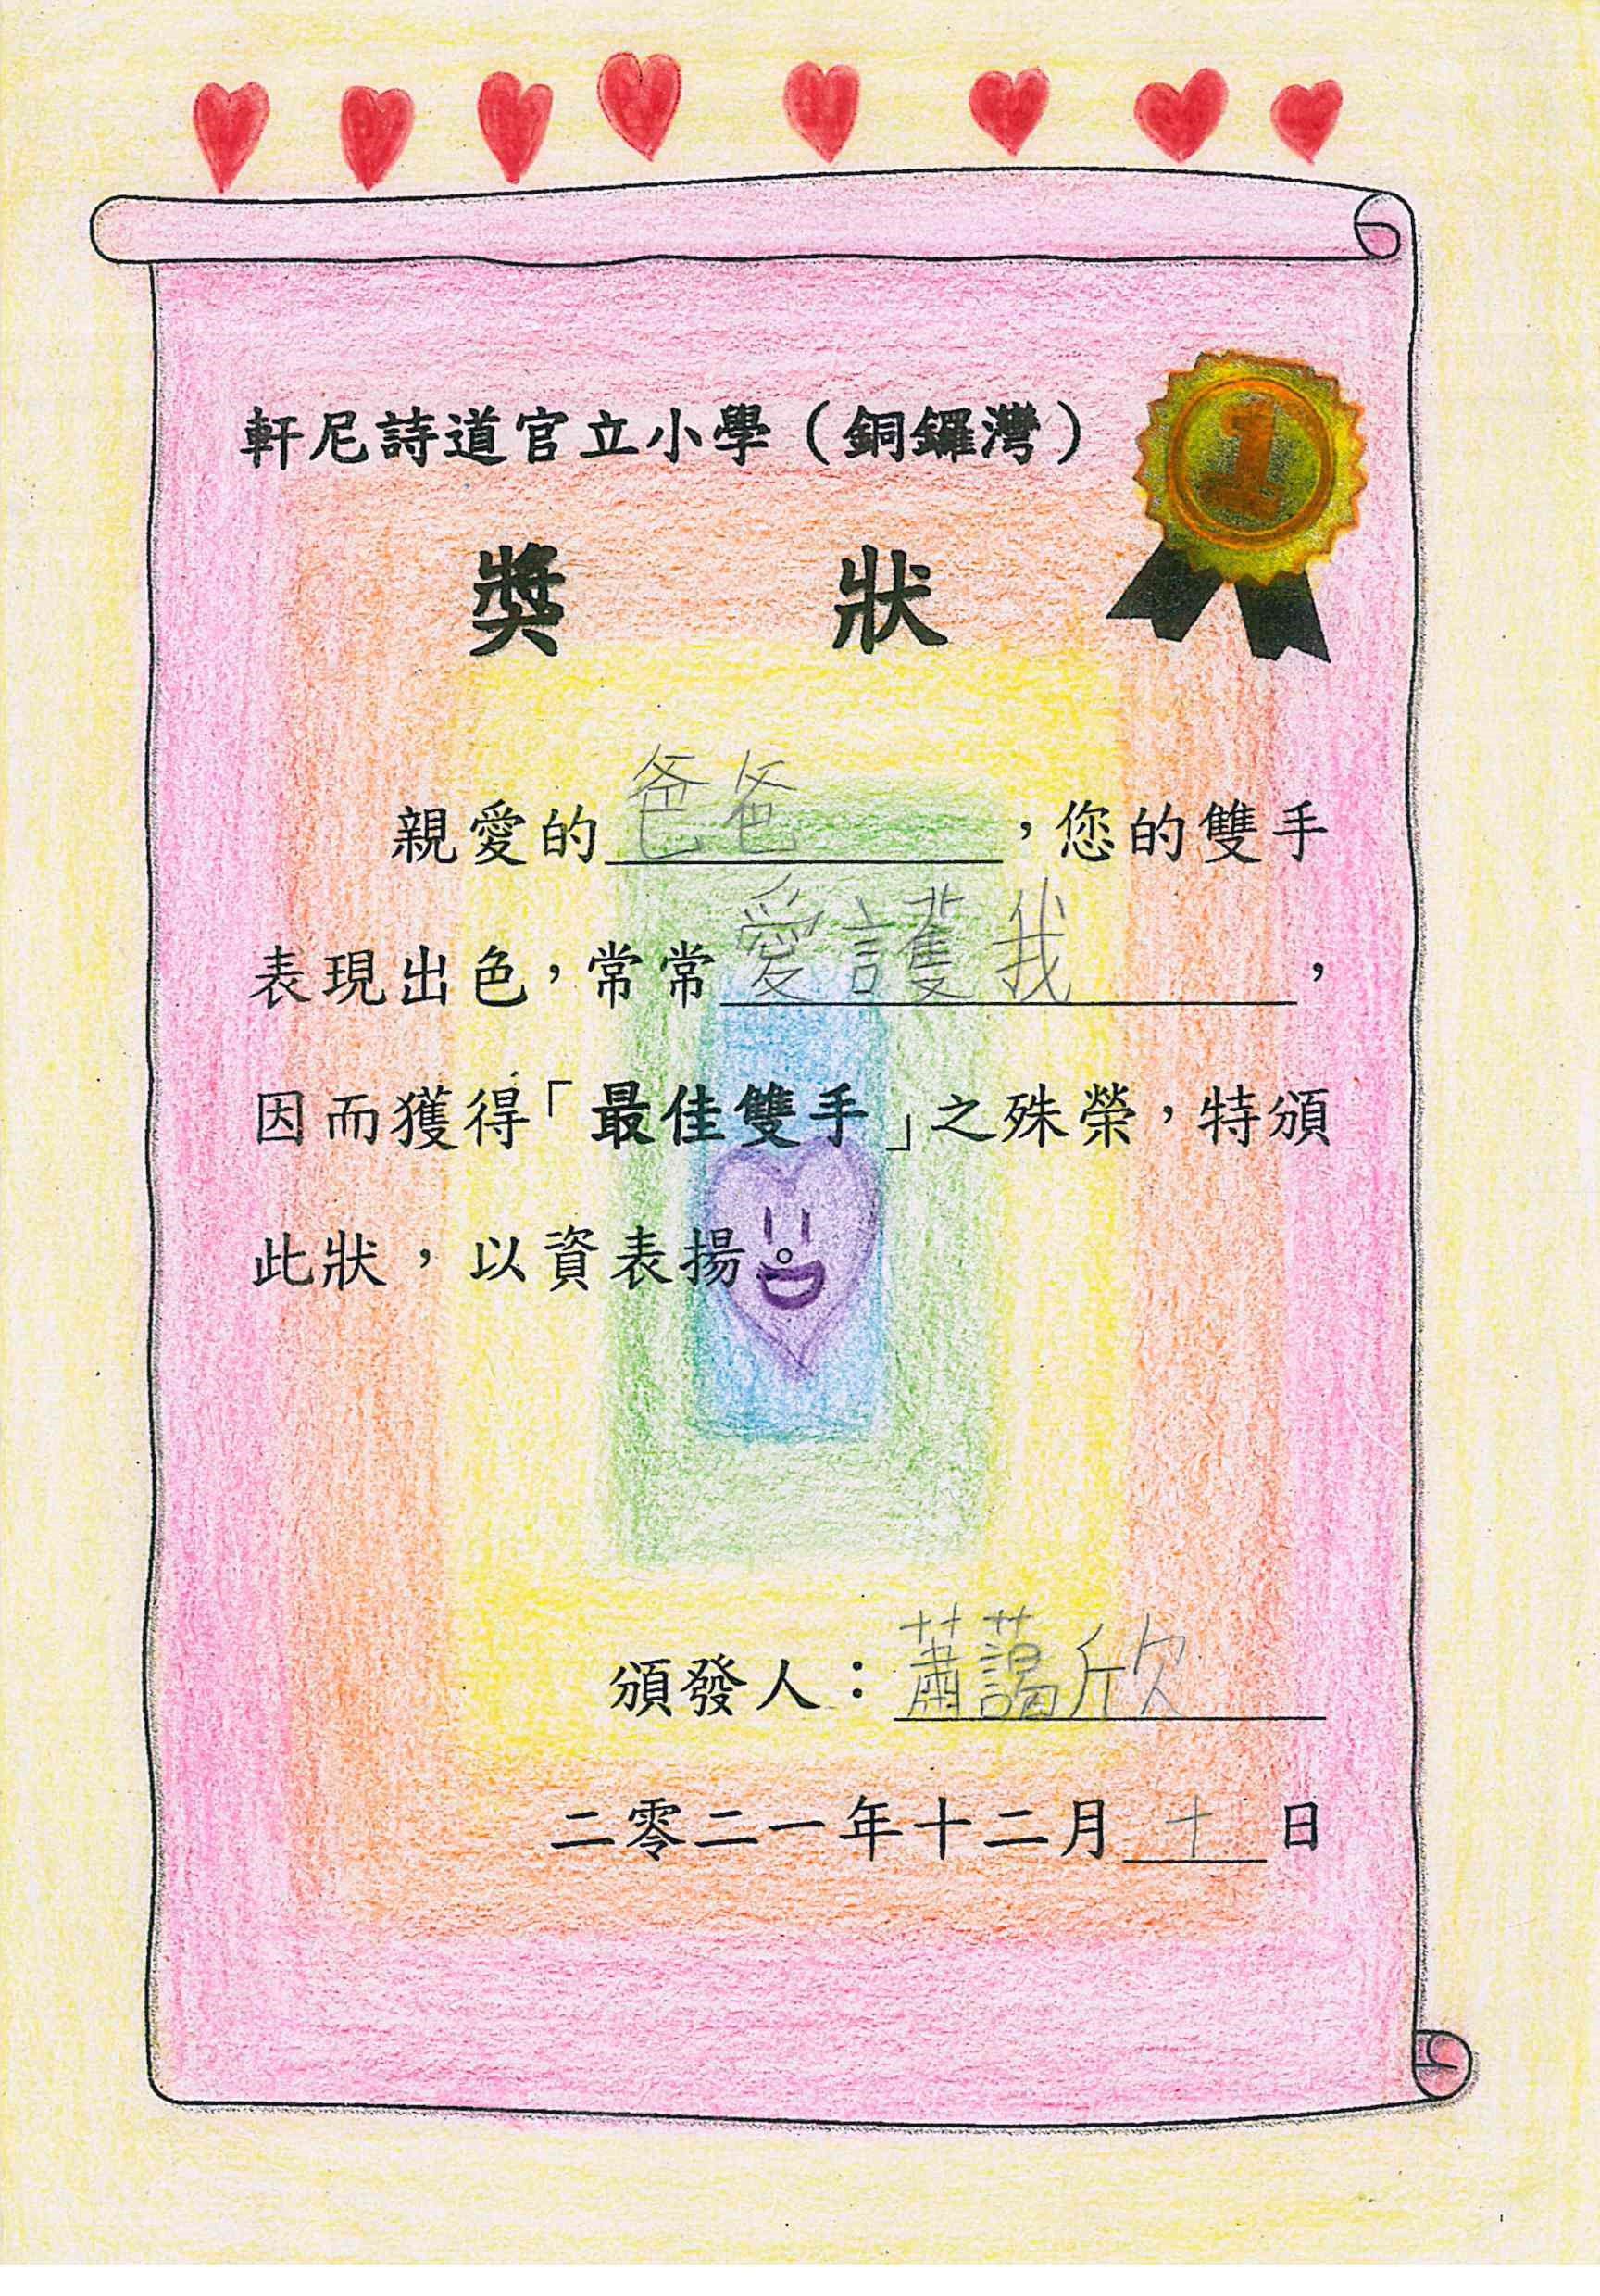 軒尼詩道官立小學（銅鑼灣）
1
獎 狀
親愛的爸爸，您的雙手
表現出色，常常愛護我，
因而獲得「最佳雙手」之殊榮，特頒
此狀，以資表揚。
頒發人：蕭藹欣
二零二一年十二月十日